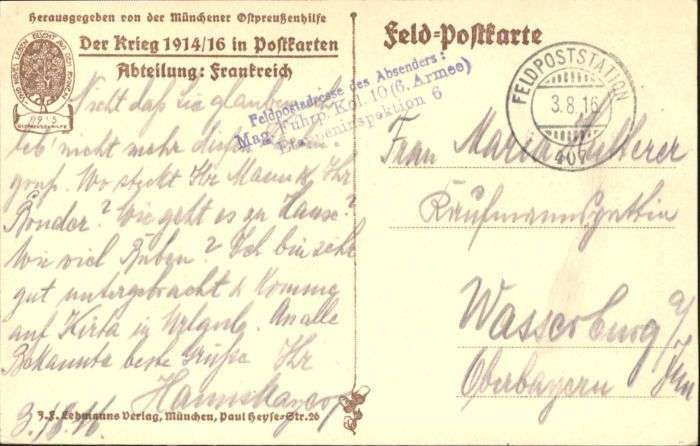 Herausgegeben von der Münchener Ostpreußenhilfe
Der Krieg 1914/16 in Postkarten
Abteilung: Frankreich
1915
Feld-Postkarte
Feldpostadresse des Absenders:
Mag. Fuhrp. Kol. 10 (6. Armee)
Etappeninspektion 6
FELDPOSTSTATION
3.8.16
407
Nicht daß Sie glauben ich
leb' nicht mehr diesen
gruß. Wo steckt Ihr Mann & Ihr
Bruder? Wie geht es zu Hause?
Wie viel Buben? Ich bin sehr
gut untergebracht & komme
auf Kirta in Urlaub. An alle
Bekannte beste Grüße Ihr
Hanns
3./8.16.
Frau Maria
Kaufmannsgattin
Wasserburg a/Inn
Oberbayern
J.F. Lehmanns Verlag, München, Paul Heyse-Str. 26